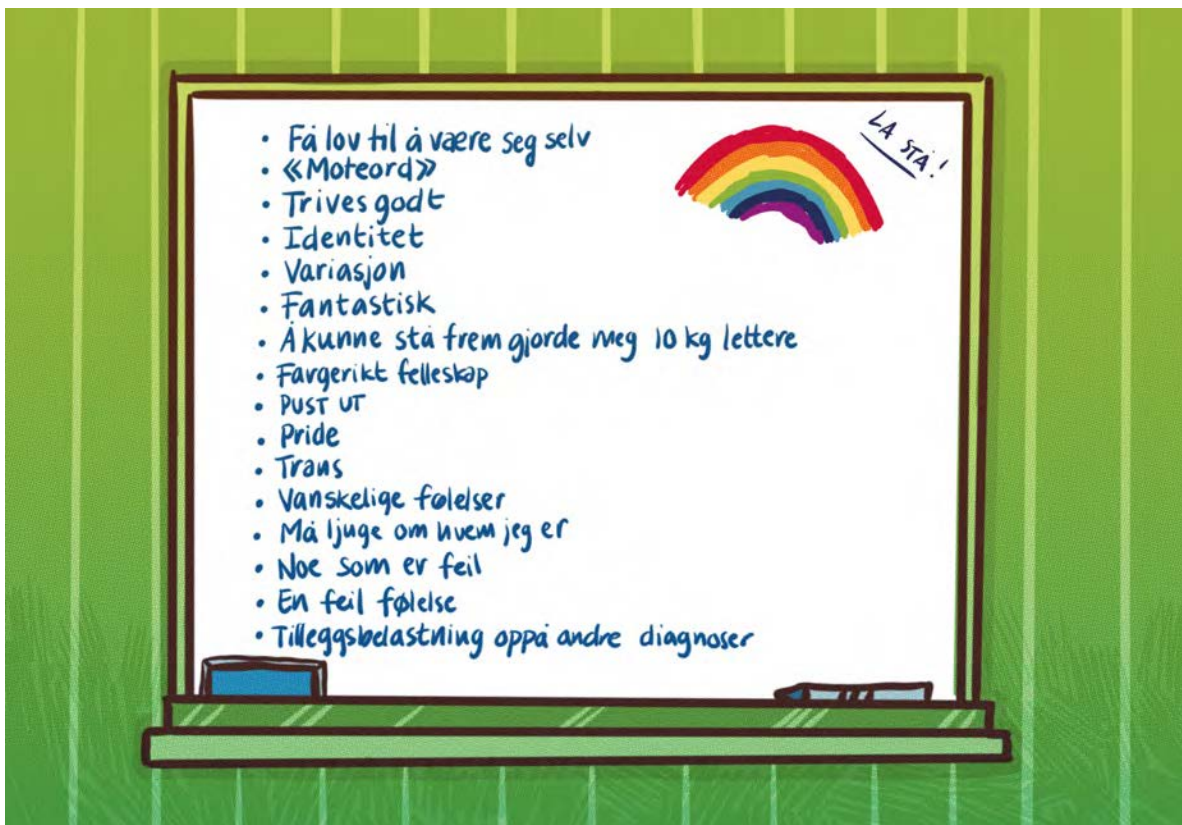 • Få lov til å være seg selv
• «Moteord»
• Trives godt
• Identitet
• Variasjon
• Fantastisk
• Å kunne stå frem gjorde meg 10 kg lettere
• Fargerikt felleskap
• PUST UT
• Pride
• Trans
• Vanskelige følelser
• Må ljuge om hvem jeg er
• Noe som er feil
• En feil følelse
• Tilleggsbelastning oppå andre diagnoser
LA STÅ!